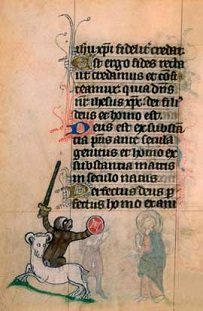 ihu xpi fidelit credat.
Est ergo fides recta
ut credamus et confi
teamur: quia dns
nr ihesus xpc: dei fili
deus et homo est.
Deus est ex substan
tia pris ante secula
genitus et homo ex
substantia matris
in seculo natus.
Perfectus deus p
fectus homo ex ani